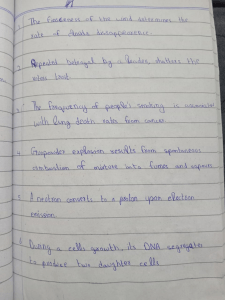 1. The fierceness of the wind determines the
rate of flame disappearance.
2. Repeated betrayal by a leader shatters the
tribe trust.
3. The frequency of people's smoking is associated
with lung death rates from cancer
4. Gunpowder explosion results from spontaneous
combustion of mixture into fumes and vapours.
5. A neutron converts to a proton upon electron
emission.
6. During a cells growth, its DNA segregates
to produce two daughter cells